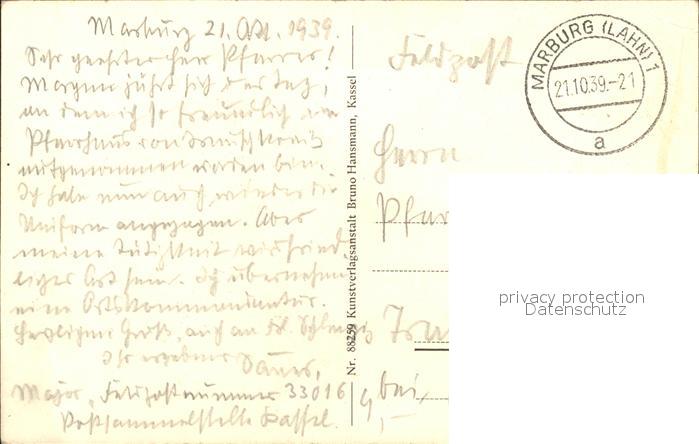 Marburg 21. Okt. 1939.
Sehr geehrter Herr Pfarrer!
Morgen jährt sich der Tag,
an dem ich so freundlich im
Pfarrhaus von
aufgenommen worden bin.
Ich habe nun auch wieder die
Uniform angezogen. Aber
meine Tätigkeit wird fried-
licher Art sein. Ich übernehme
eine Ortskommandantur.
Herzlichen Gruß, auch an
Ihr ergebener
Major, Feldpostnummer 33016
Postsammelstelle Kassel.
Nr. 88259 Kunstverlagsanstalt Bruno Hansmann, Kassel
Feldpost
MARBURG (LAHN) 1
21.10.39.-21
a
Herrn
Pfar
bei
privacy protection
Datenschutz